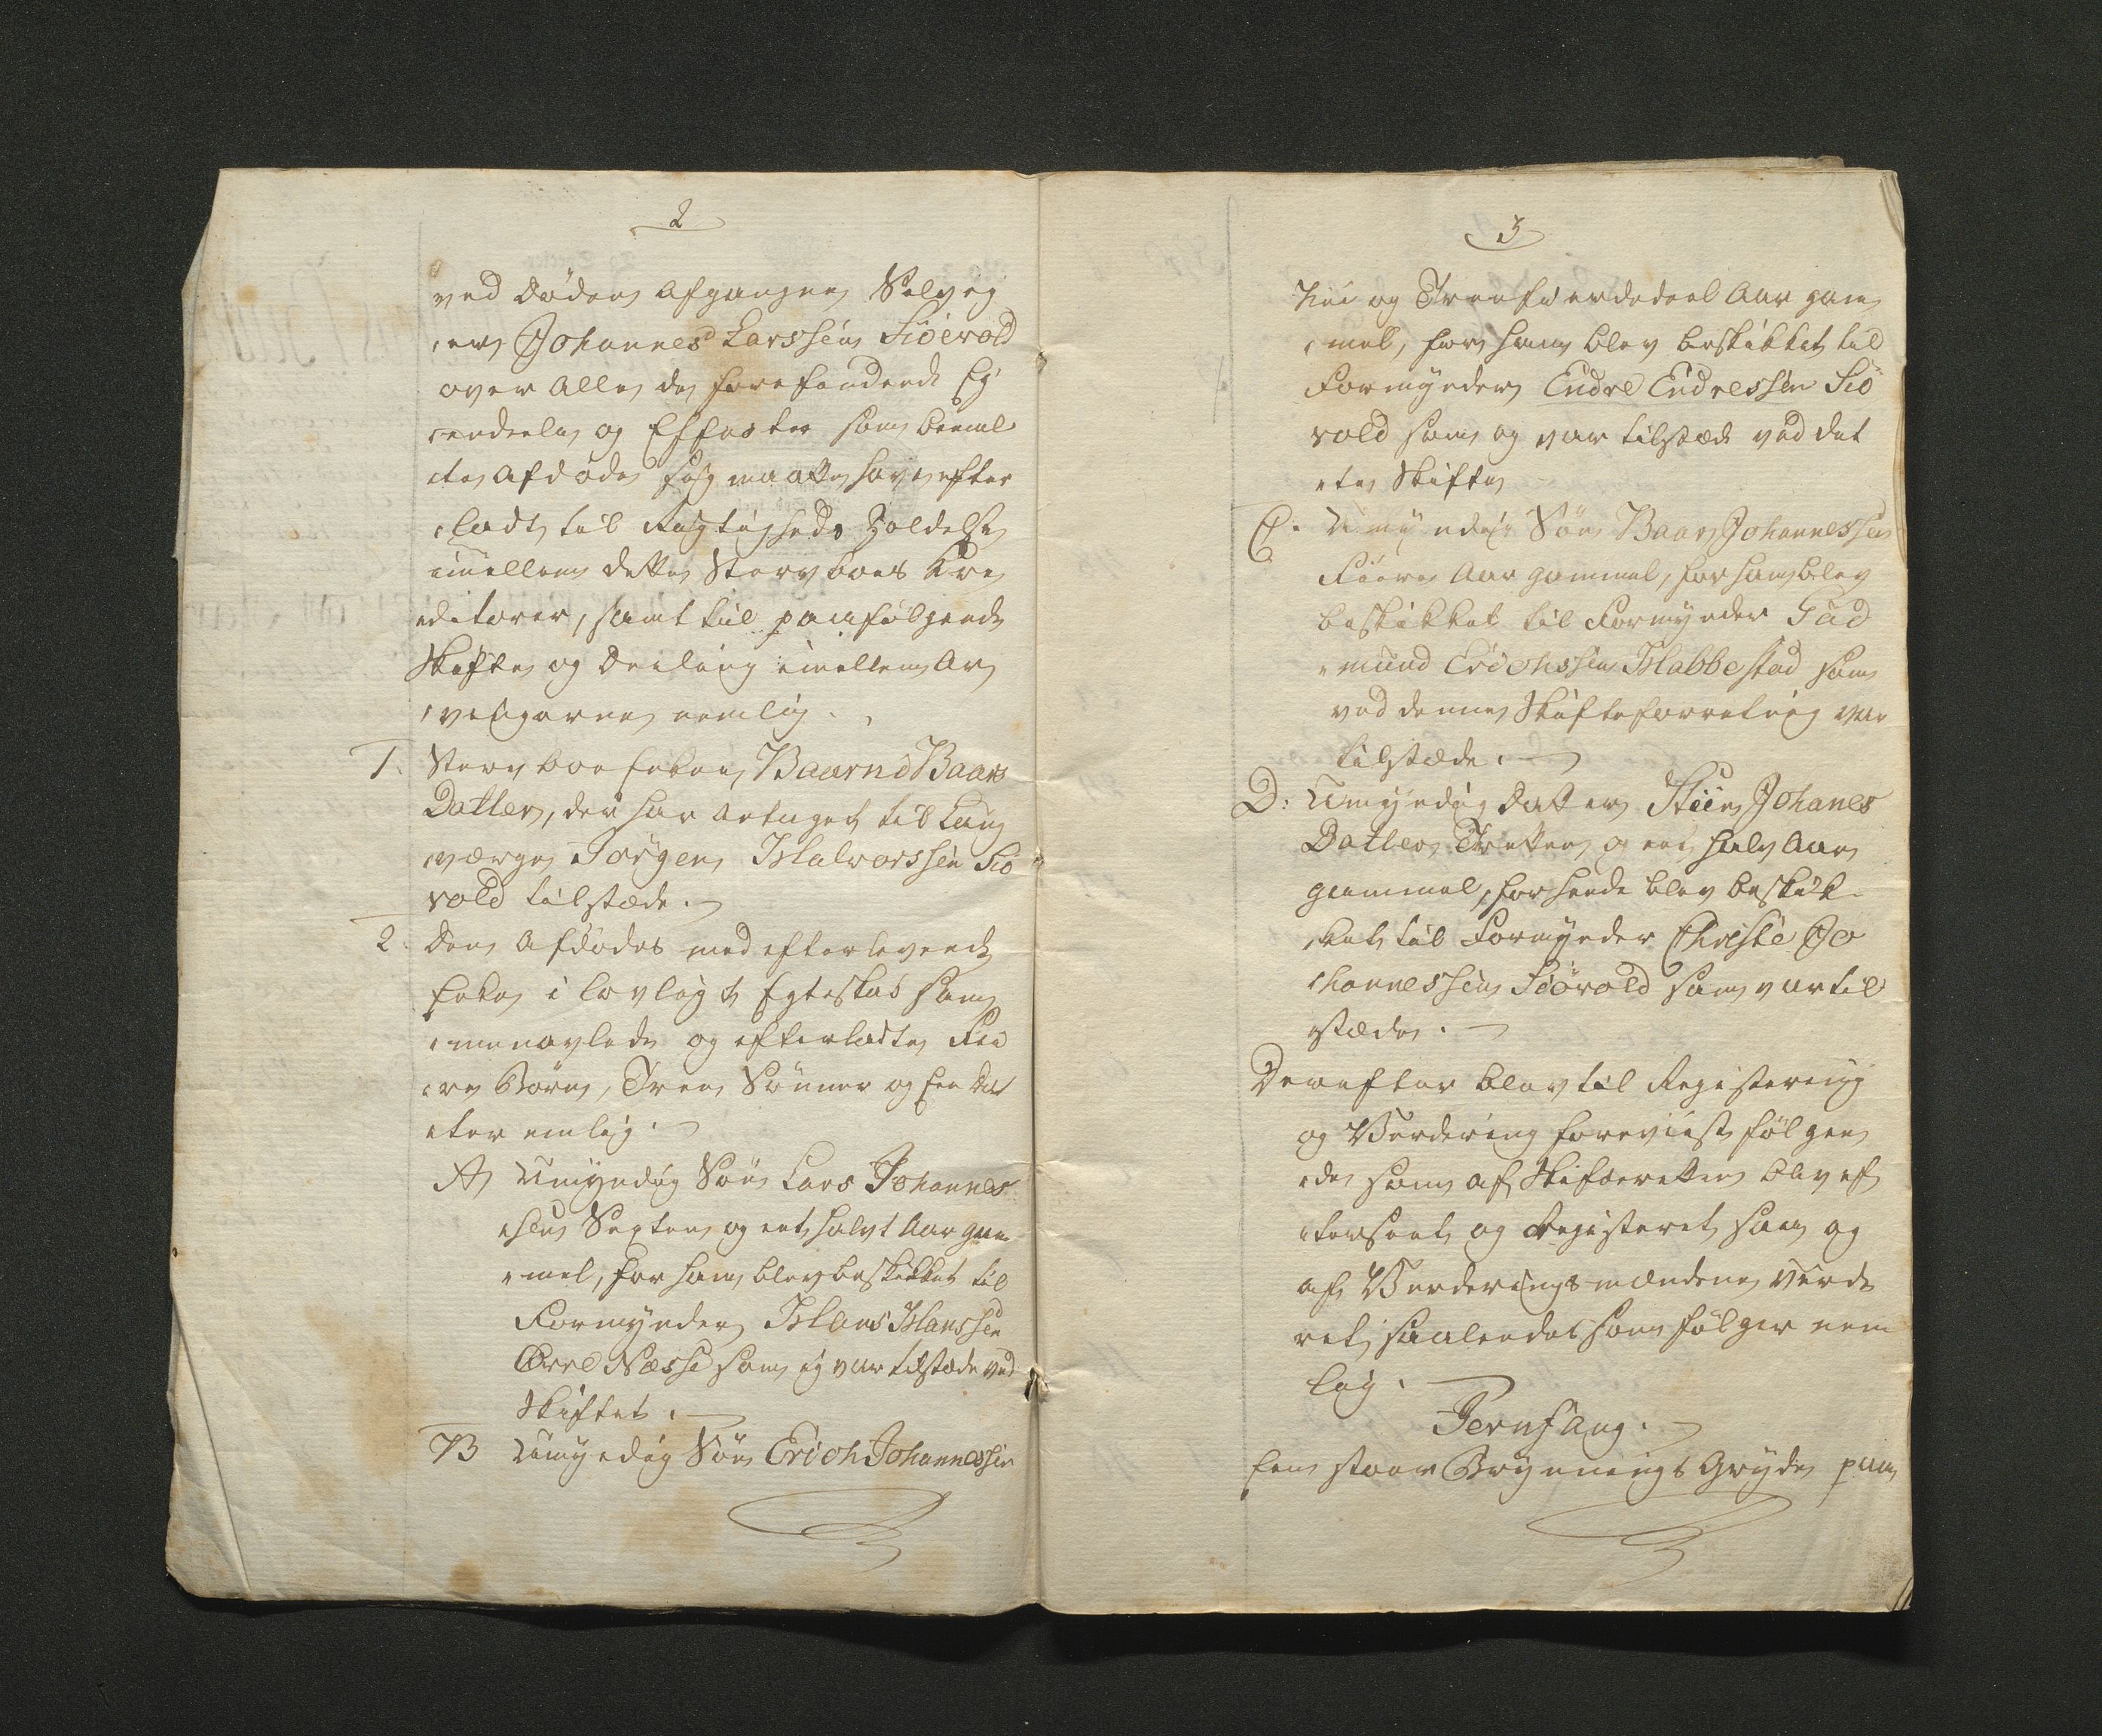 2
ved Døden Afgangne Selvei
er Johannes Larssen Siøevold
over Alle de forefindende Ei
endeele og Effecter som bemel
te Afdøde sig maatte have efter
ladt til Rigtigheds
imellem dette Stervboes Kre
editorer, samt til paafølgende
Skifte og Deeling imellem Ar
vingerne nemlig.
1. Stervboe Enken Baarne Baars
Datter, der har antaget til Laug
værge Jørgen Halvorssen Siø
vold tilstæde.
2. Den Afdødes med efterlevende
Enke i lovligt Egteskab sam
menavlede og efterladte Fii
re Børn, Tree Sønner og Een Dat
ter nemlig.
A Umyndig Søn Lars Johannes
sen Sexten og eet halvt Aar gam
mel, for ham blev beskikket til
Formynder Hans Hanssen
Øvre Næsse som ey var tilstæde ved
Skiftet.
B Umyndig Søn Erich Johannessen
3
Tii og Treefierdedeel Aar gam
mel, for ham blev beskikket til
Formynder Endre Endressen Siø
vold som og var tilstæde ved det
te Skifte
C. Umyndig Søn Baar Johannessen
Fiire Aar gammel, for ham blev
beskikket til Formynder Gud
mund Erichssen Habbestad som
ved denne Skifteforretning var
tilstæde.
D: Umyndig Datter Stiin Johanes
Datter Tretten og eet halv Aar
gammel, for hende blev beskik
ket til Formynder Christe Jo
hannessen Siøvold som var til
stæde.
Derefter blev til Registering
og Vurdering foreviist følgen
de som af Skifteretten blev ef
terseet og Registeret som og
af Vurderingsmændene vurde
ret saaledes som følger nem
lig.
Jernfang.
Een stoer Brygnings Gryde paa